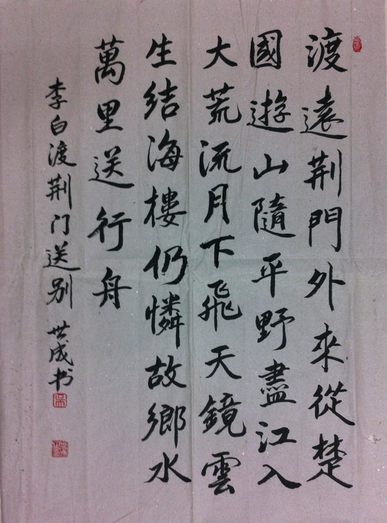 渡遠荆門外來從楚
國遊山隨平野盡江入
大荒流月下飛天鏡雲
生结海樓仍憐故鄉水
萬里送行舟
李白渡荆门送别 世成书